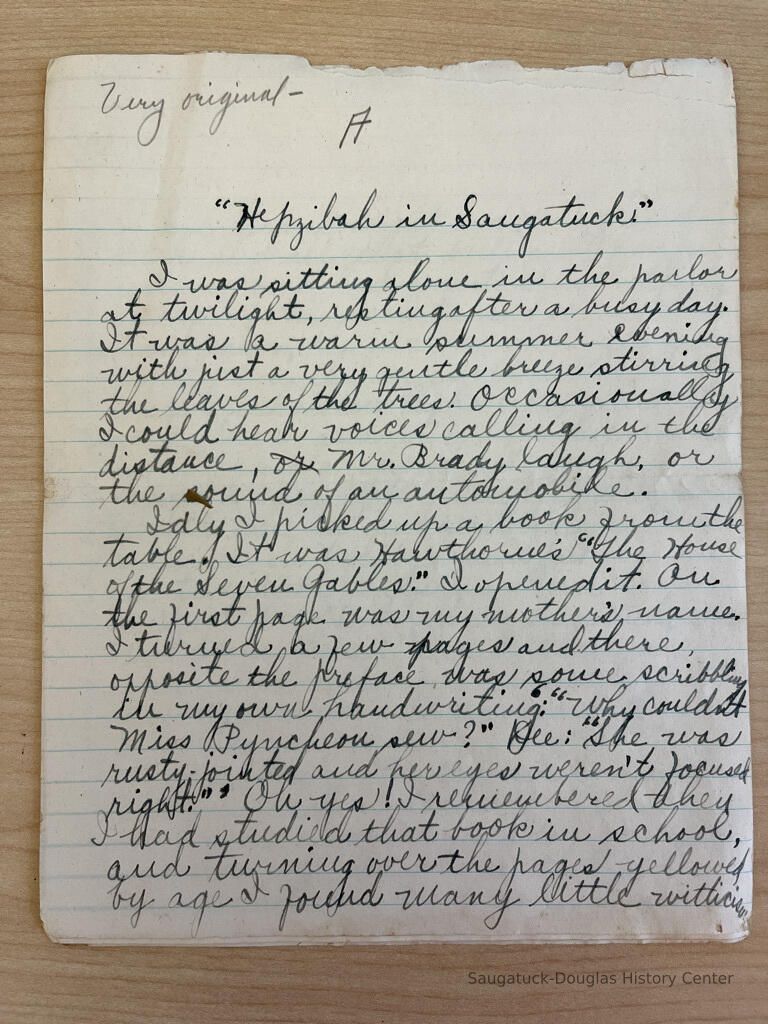 Very original-
A
"Hepzibah in Saugatuck."
I was sitting alone in the parlor
at twilight, resting after a busy day.
It was a warm summer evening
with just a very gentle breeze stirring
the leaves of the trees. Occasionally
I could hear voices calling in the
distance, or Mr. Brady laugh, or
the sound of an automobile.
Idly I picked up a book from the
table. It was Hawthorne's "The House
of the Seven Gables." I opened it. On
the first page was my mother's name.
I turned a few pages and there,
opposite the preface was some scribbling
in my own handwriting: "Why couldn't
Miss Pyncheon sew?" Dee: "She was
rusty-jointed and her eyes weren't focused
right." Oh yes! I remembered then
I had studied that book in school,
and turning over the pages yellowed
by age I found many little witticisms
Saugatuck-Douglas History Center